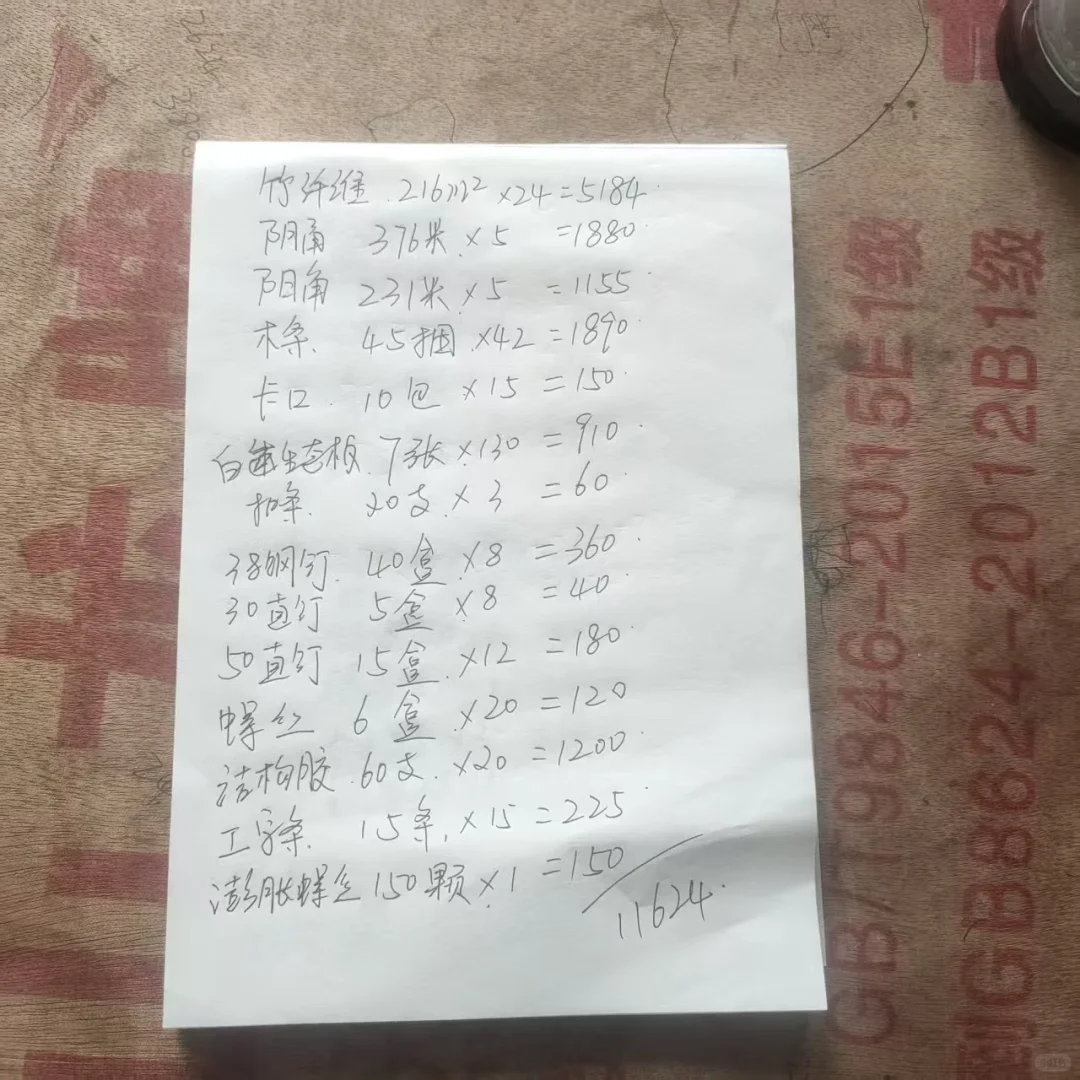 竹纤维 216m² ×24=5184
阴角 376米 ×5 =1880
阳角 231米 ×5 =1155
木条 45捆 ×42=1890
卡口 10包 ×15=150
白色生态板 7张×130=910
扣条 20支×3 =60
38钢钉 40盒×8=360
30直钉 5盒×8 =40
50直钉 15盒×12=180
螺丝 6盒×20=120
结构胶 60支×20=1200
工字条 15条×15=225
澎胀螺丝150颗×1=150
11624
GB/T9846-2015E1级
GB8624-2012B1级